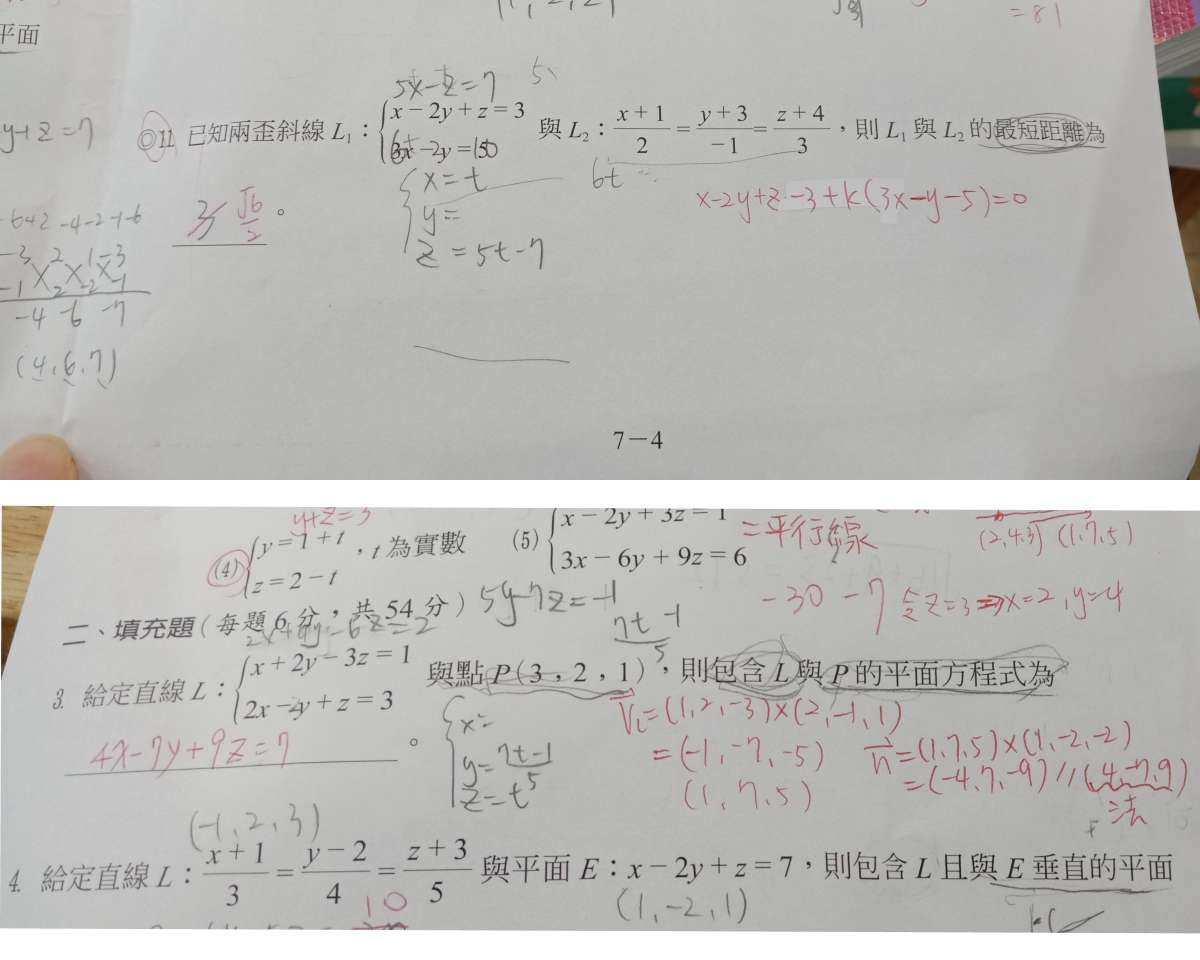 = 81
平面
5x-z=7
y+z=7
◎11. 已知兩歪斜線 L₁：{x－2y＋z＝3 與 L₂：(x＋1)/2＝(y＋3)/－1＝(z＋4)/3，則 L₁ 與 L₂ 的最短距離為
√6/2 。
{x=t
y=
z=5t-7
6t
x-2y+z-3+k(3x-y-5)=0
-4 -6 -7
(4,6,7)
7－4
y+z=3
(4){y＝1＋t
z＝2－t ，t 為實數
(5){x－2y＋3z＝1
3x－6y＋9z＝6
=平行線
(2,4,3) (1,7,5)
二、填充題（每題 6 分，共 54 分）
5y-7z=-1
7t-1
5
-30-7
令z=3⇒x=2,y=4
3. 給定直線 L：{x＋2y－3z＝1
2x－y＋z＝3 與點 P(3，2，1)，則包含 L 與 P 的平面方程式為
4x-7y+9z=7 。
{x=
y=(7t-1)/5
z=t
V_L=(1,2,-3)×(2,-1,1)
=(-1,-7,-5)
(1,7,5)
n=(1,7,5)×(1,-2,-2)
=(-4,7,-9)//(4,-7,9)
法
(-1,2,3)
4. 給定直線 L：(x＋1)/3＝(y－2)/4＝(z＋3)/5 與平面 E：x－2y＋z＝7，則包含 L 且與 E 垂直的平面
10
(1,-2,1)